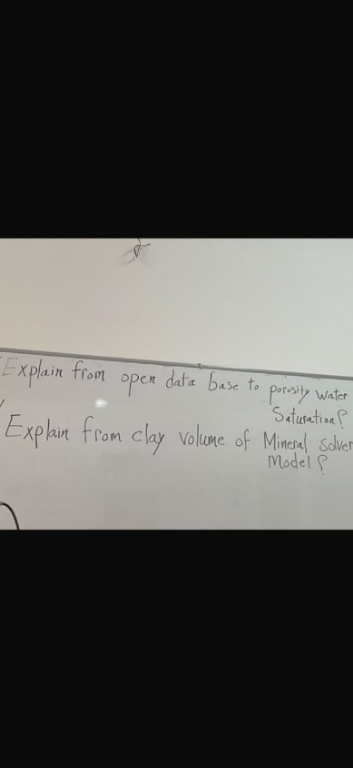 Explain from open data base to porosity water
Saturation?
Explain from clay volume of Mineral Solver
Model?